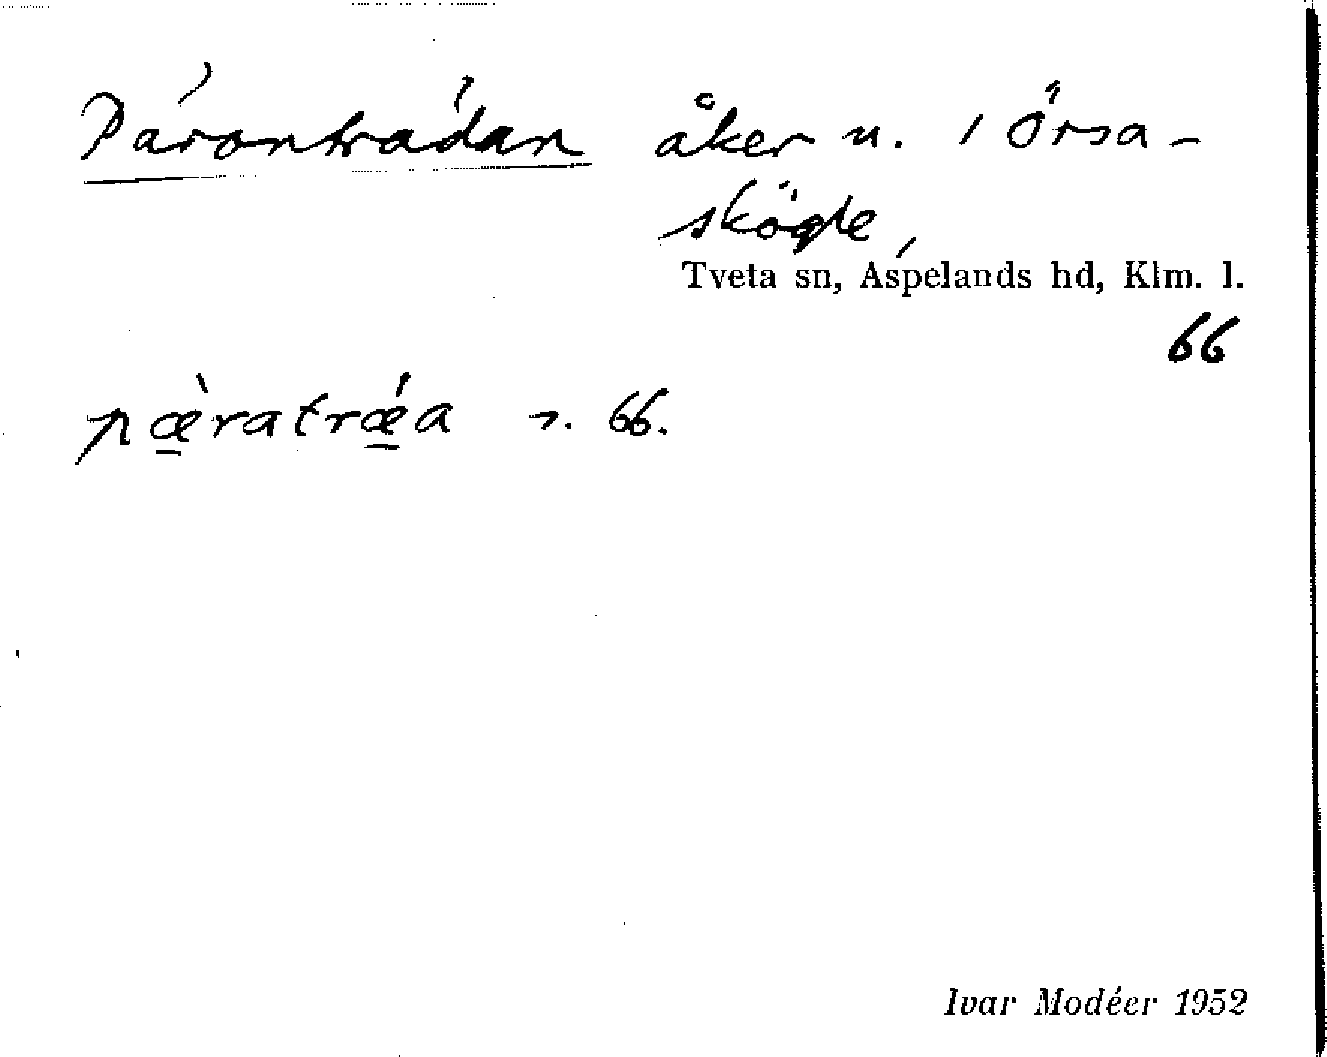 Päronträdan åker u. 1 Örsa-
skögle,
Tveta sn, Aspelands hd, Klm. l.
66
pæ̱̀ratrǽ̱a s. 66.
Ivar Modéer 1952